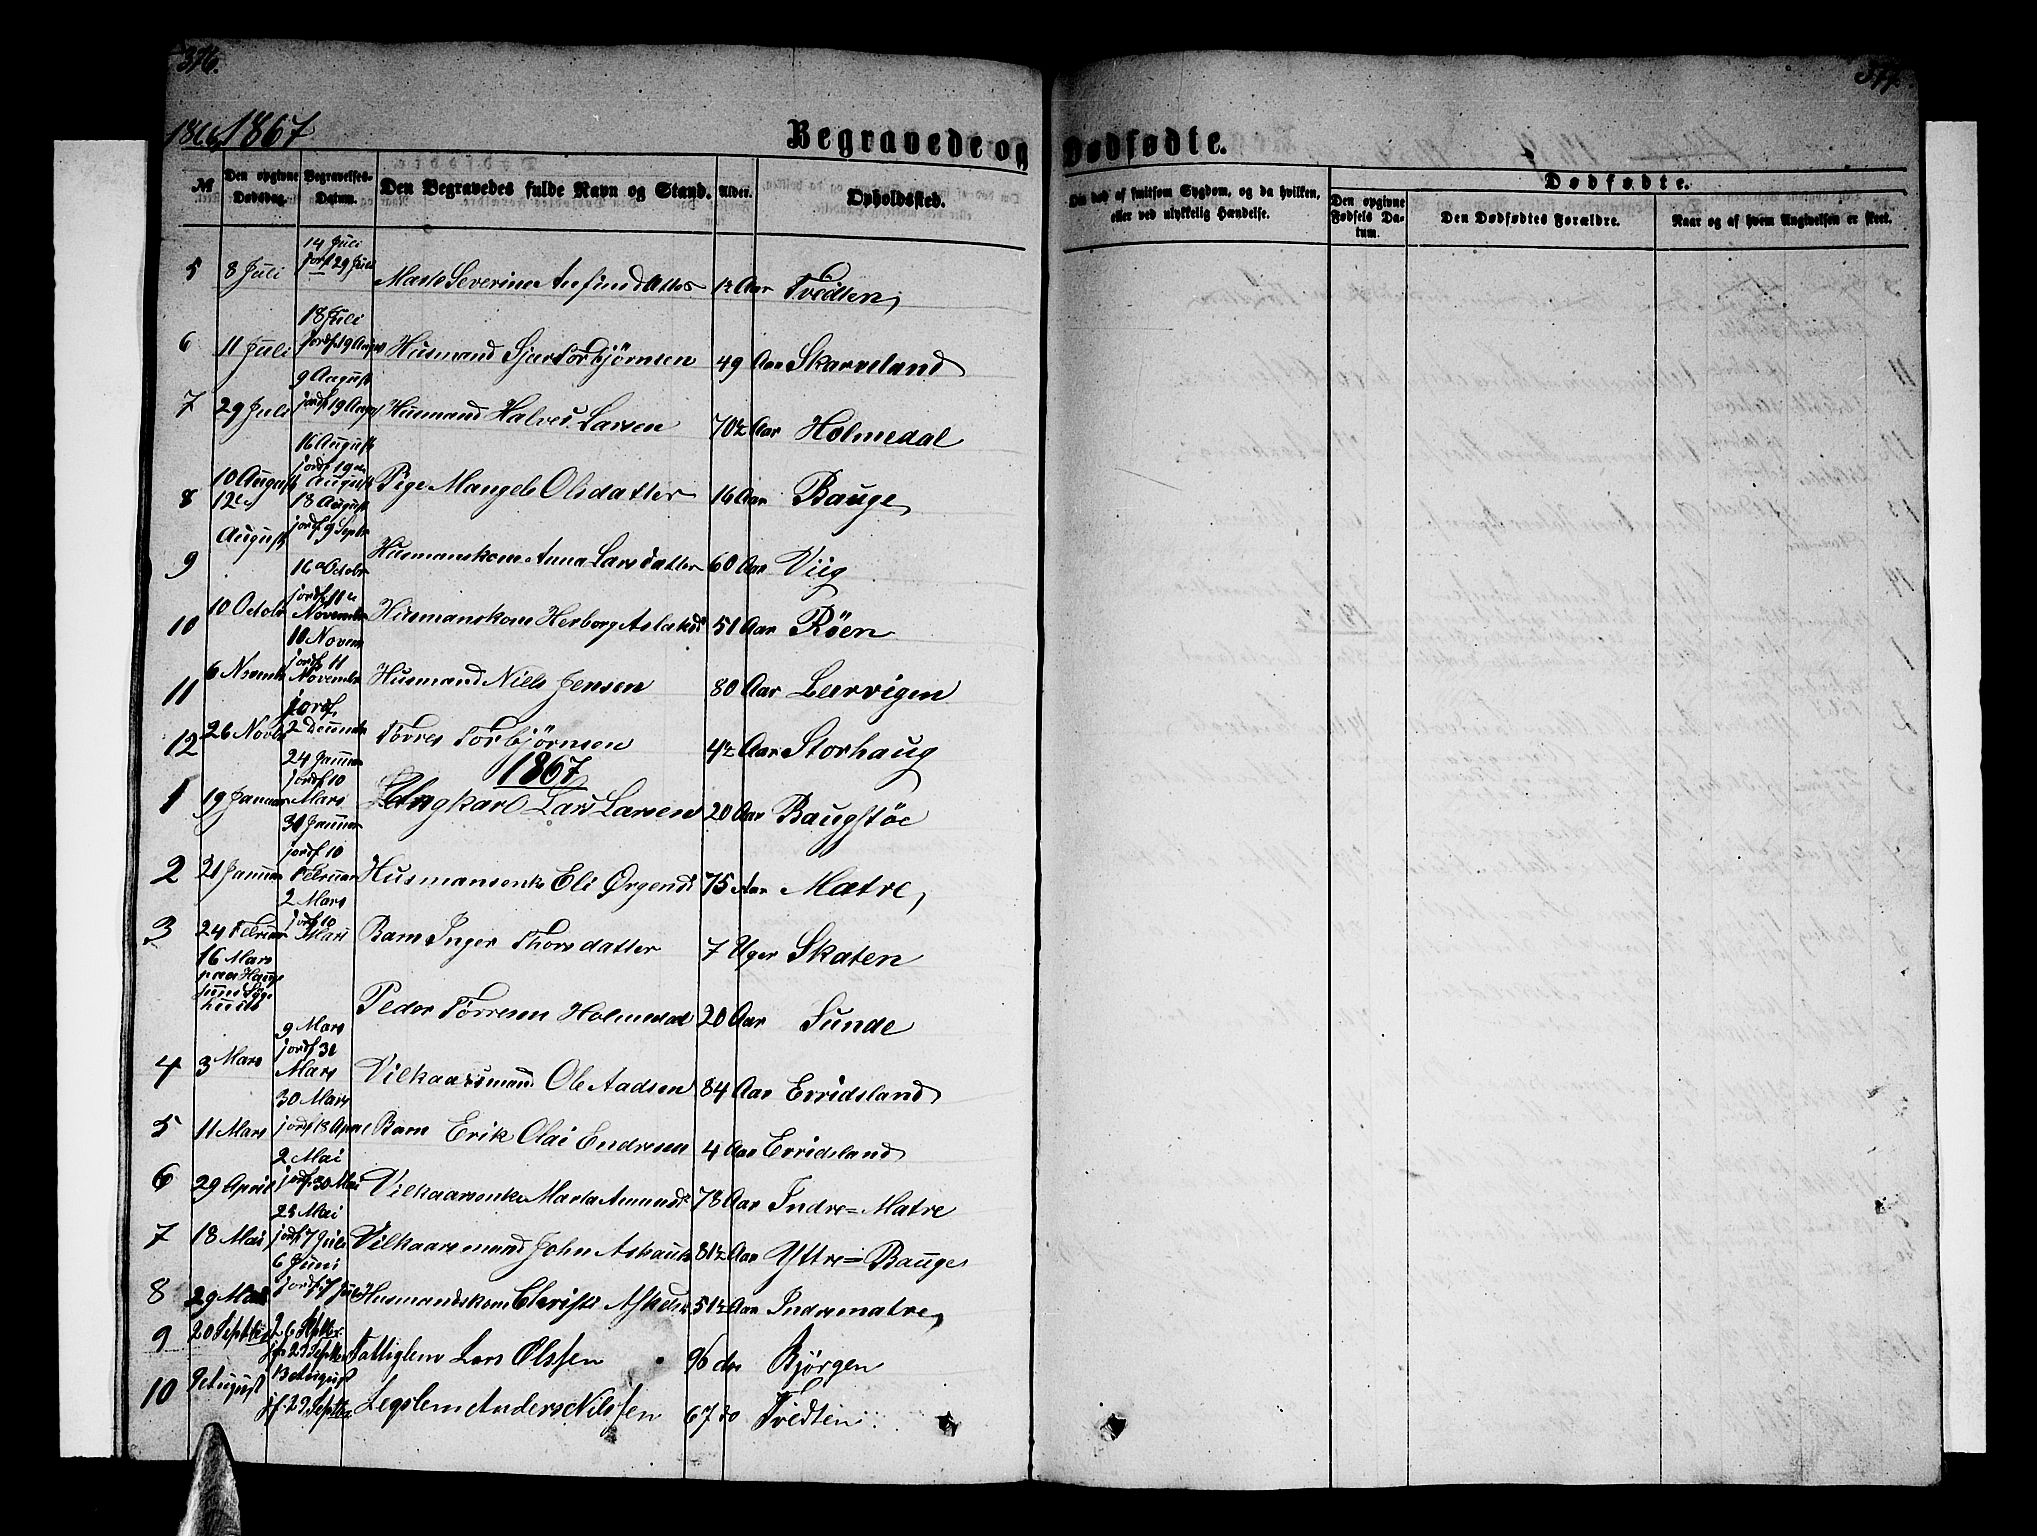 376.
377.
1866. 1867
Begravede og Dødfødte.
№
Den opgivne Dødsdag.
Begravelses-Datum.
Den Begravedes fulde Navn og Stand.
Alder.
Opholdssted.
Om død af smitsom Sygdom, og da hvilken, eller ved ulykkelig Hændelse.
Dødfødte.
Den opgivne Fødsels Datum.
Den Dødfødtes Forældre.
Naar og af hvem Angivelsen er skeet.
5 8 Juli 14 Juli jordf 29 Juli Severine Anfindsdatter 12 Aar Tvedten
6 11 Juli 18 Juli jordf 19 August Husmand Torbjørnsen 49 Aar Skarveland
7 29 Juli 9 August jordf 19 August Husmand Halvor Larsen 70½ Aar Holmedal
8 10 August 16 August jordf 19 August Pige Mangele Olsdatter 16 Aar Bauge
9 12 August 18 August jordf 9 Septbr Husmanskone Anna Larsdatter 60 Aar Viig
10 10 Octobr 16 Octobr jordf 11 November Husmanskone Herborg Aslaksd: 51 Aar Røen
11 6 Novemb 10 Novem jordf 11 November Husmand Niels Jensen 80 Aar Leervigen
12 26 Novbr 2 Decemb Torres Torbjørnsen 4½ Aar Storhaug
1867
1 19 Januar 24 Januar jordf 10 Mars Ungkarl Lars Larsen 20 Aar Baugstøe
2 21 Januar 31 Januar jordf 10 Februar Husmansenke Eli Ørgensd: 75 Aar Matre
3 24 Februar 2 Mars jordf 10 Mars Barn Inger Thorsdatter 7 Uger Skaten
16 Mars paa Sygehuus Peder Torresen Holmedal 20 Aar Sunde
4 3 Mars 9 Mars jordf 31 Mars Vilkaarsmand Ole Aadsen 84 Aar Erridsland
5 11 Mars 30 Mars jordf 13 April Barn Erik Olai Endresen 4 Aar Erridsland
6 29 April 2 Mai jordf 30 Mai Vilkaarsenke Marta Amundsd: 78 Aar Indre=Matre
7 18 Mai 23 Mai jordf 7 Juli Vilkaarsmand John 81½ Aar Yttre=Bauge
8 29 Mai 6 Juni jordf 7 Juli Husmandskone Christi 51½ Aar Indrematre
9 20 Septbr 26 Septbr. jf. 29 Septbr Fattiglem Lars Olssen 96 do Bjørgen
10 9 August 13 August jf. 29 Septbr Legslem Anders Nilssen 67 do Tvedten